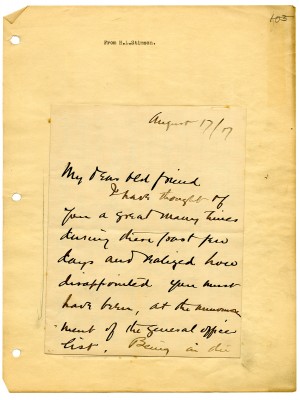 103
From H.L.Stimson.
August 17/17
My dear old friend
I have thought of
you a great many times
during these past few
days and realized how
disappointed you must
have been, at the announce
ment of the general officer
list. Being in die